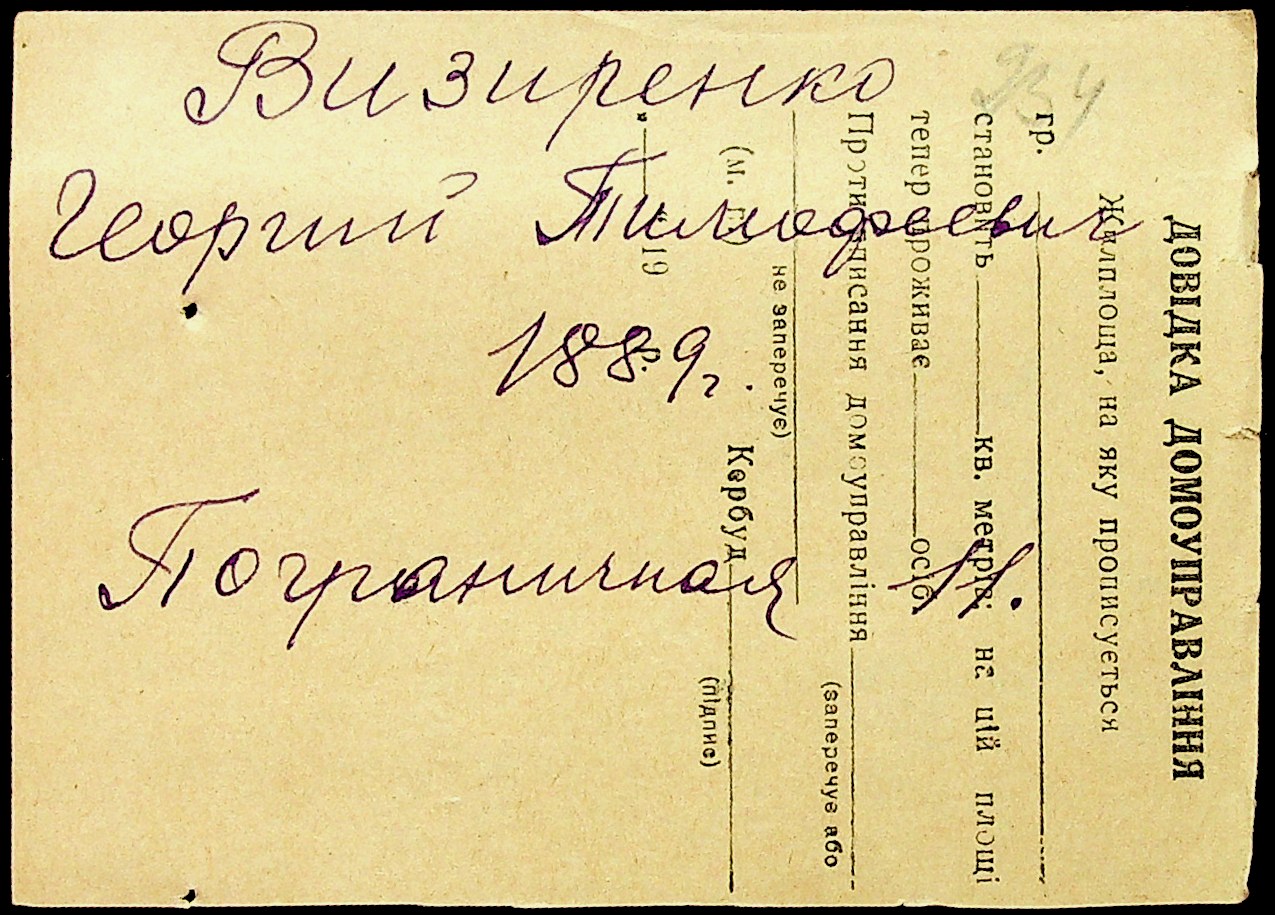 Визиренко
Георгий Тимофеевич
1889 г.
Пограничная 11.
934
ДОВІДКА ДОМОУПРАВЛІННЯ
Жилплоща, на яку прописується
гр.
становить кв. метрів; на цій площі
тепер проживає осіб
Проти прописання домоуправління
(заперечує або
не заперечує)
(м. П.) Кербуд
(підпис)
" " 19